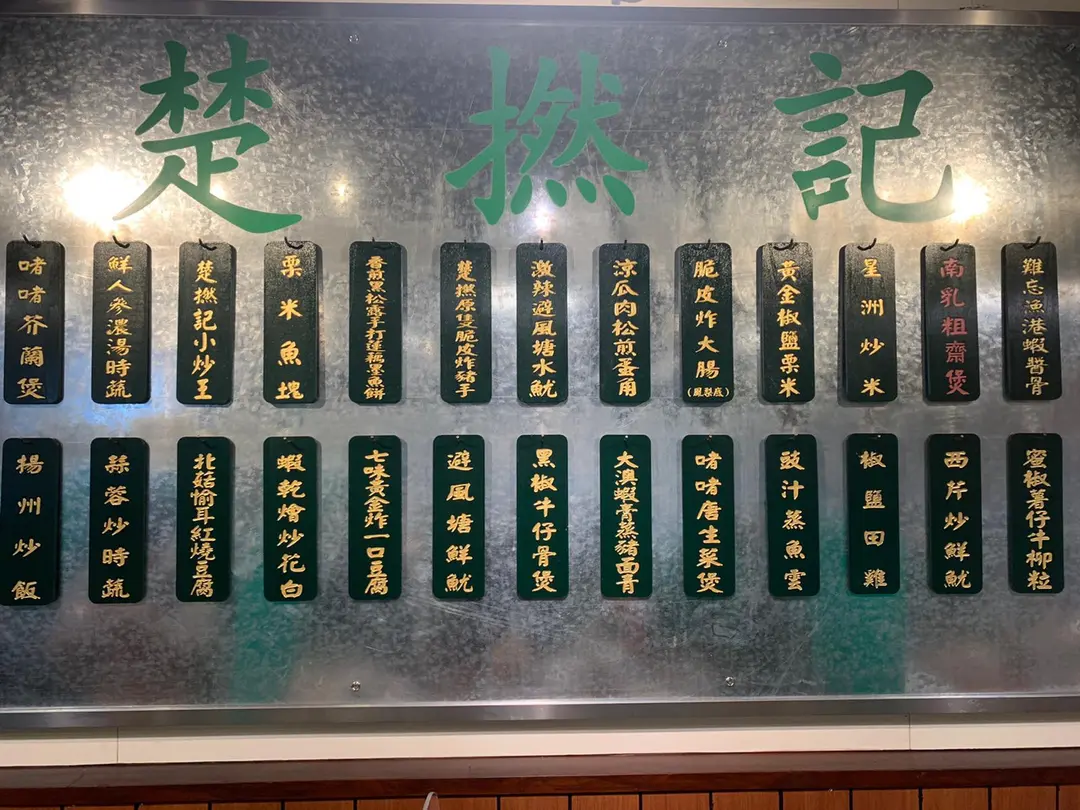 楚撚記
啫啫芥蘭煲
鮮人參濃湯時蔬
楚撚記小炒王
栗米魚塊
香煎黑松露手打蓮藕墨魚餅
楚撚原隻脆皮炸豬手
激辣避風塘水魷
涼瓜肉松煎蛋角
脆皮炸大腸
(鳳梨底)
黃金椒鹽栗米
星洲炒米
南乳粗齋煲
難忘漁港蝦醬骨
楊州炒飯
蒜蓉炒時蔬
北菇愉耳紅燒豆腐
蝦乾燴炒花白
七味黃金炸一口豆腐
避風塘鮮魷
黑椒牛仔骨煲
大澳蝦膏蒸豬面青
啫啫唐生菜煲
豉汁蒸魚雲
椒鹽田雞
西芹炒鮮魷
蜜椒薯仔牛柳粒